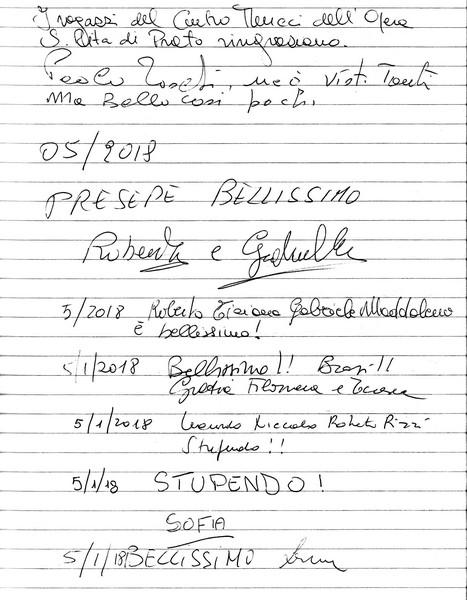 I ragazzi del Centro Meucci dell'Opera
S. Rita di Prato ringraziano.
Paolo, ne ò visti Tanti
Ma Bello così pochi.
05/2018
PRESEPE BELLISSIMO
Roberta e Gabriella
5/2018 Roberto Tiziana Gabriele Maddalena
è bellissimo!
5/1/2018 Bellissimo!! Bravi!!
Grazia Filomena e
5/1/2018 Leonardo Niccolo Roberto Rizzi
Stupendo!!
5/1/18 STUPENDO!
SOFIA
5/1/18 BELLISSIMO